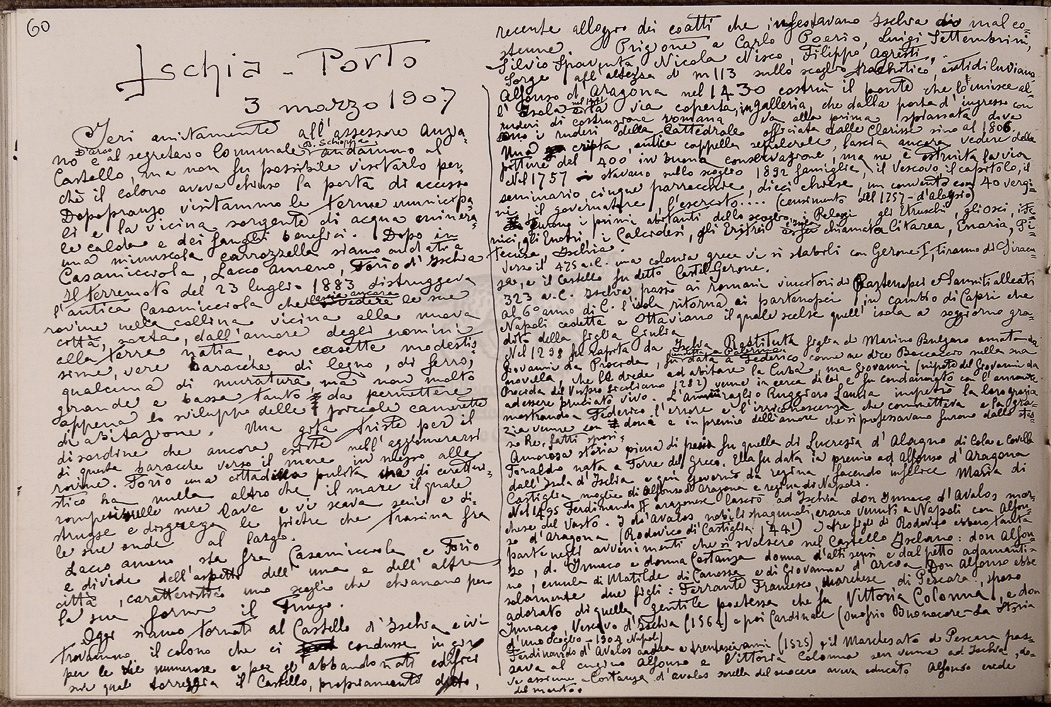 60
Ischia - Porto
3 marzo 1907
Ieri unitamente all'assessore
no e al segretario Comunale andammo al
Castello, ma non fu possibile visitarlo per
chè il colono aveva chiuso la porta di accesso
Dopopranzo visitammo le terme municipa
li e la vicina sorgente di acqua minera
le calda e dei fanghi benefici. Dopo in
una minuscola carrozzella siamo andati a
Casamicciola, Lacco Ameno, Forio d'Ischia
Il terremoto del 23 luglio 1883 distruggeva
l'antica Casamicciola che le sue
rovine nella collina vicina alla nuova
città, sorta, dall'amore degli uomini
alla terra natia, con casette modestis
sime, vere baracche di legno, di ferro,
qualcuna di muratura, ma non molto
grande e bassa tanto da permettere
appena lo sviluppo delle piccole camerette
di abitazione. Una gita triste per il
disordine che ancora esiste nell'agglomerarsi
di queste baracche verso il mare in mezzo alle
rovine. Forio una cittadella pulita di caratteri
stico ha nulla altro che il mare il quale
rompesi nelle nere lave e vi scava seni e di
strugge e disgrega le pietre che trascina fra
le sue onde al largo.
Lacco ameno sta fra Casamicciola e Forio
e divide dell'aspetto dell'una e dell'altra
città, caratteristico uno scoglio che chiamano per
la sua forma il Fungo.
Oggi siamo tornati al Castello d'Ischia e ivi
trovammo il colono che ci condusse in giro
per le vie numerose e per gli abbandonati edifici
sui quali torreggia il Castello, propriamente detto,
recente alloggio dei coatti che infestavano Ischia di mal co
stume. Prigione a Carlo Poerio, Luigi Settembrini,
Silvio Spaventa, Nicola Nisco, Filippo Agresti.
Sorge all'altezza di m 113 sullo scoglio trachitico, antidiluviano
Alfonso d'Aragona nel 1430 costruì il ponte che lo unisce al
l'Isola e la via coperta, in galleria, che dalla porta d'ingresso con
ruderi di costruzione romana va alla prima spianata dove
sono i ruderi della Cattedrale officiata dalle Clarisse sino al 1806.
Una cripta, antica cappella sepolcrale, lascia ancora vedere delle
pitture del 400 in buona conservazione, ma ne è ostruita la via
Nel 1757 stavano sullo scoglio 1892 famiglie, il vescovo, il capitolo, il
seminario cinque parrocchie, dieci chiese, un convento con 40 vergi
ni, il governatore, l'esercito... (censimento del 1757 - d'Aloisio)
Furono i primi abitanti dello scoglio i Pelasgi, gli Etruschi, gli Osci, i Fe
nici, gli Eubei, i Calcidesi, gli Eritresi chiamata Citarea, Enaria, Pi
tecusa, Ischia.
Verso il 475 a.C. una colonia greca vi si stabilì con Gerone I, tiranno di Siracu
sa, e il Castello fu detto Castel Gerone.
323 a.C. Ischia passò ai romani vincitori di Partenopei e Sanniti alleati
al 6° anno di C. l'isola ritornò ai partenopei in cambio di Capri che
Napoli cedette a Ottaviano il quale scelse quell'isola a soggiorno gra
dito della figlia Giulia
Nel 1298 fu rapita da Ischia Restituta figlia di Marino Bulgaro amata da
Giovanni da Procida, portata a Federico come ne dice Boccaccio nella sua
novella, che la diede ad abitare la Cuba, ma Giovanni (nipote del Giovanni da
Procida del Vespro Siciliano 1282) venne in cerca di lei e fu condannato con l'amante
ad essere bruciato vivo. L'Ammiraglio Ruggiero Lauria impetrò la loro grazia
mostrando a Federico l'errore e l'irriconoscenza che commetteva e la gra
zia venne con dona e in premio dell'amore che si professavano furono dallo stes
so Re, fatti sposi.
Amorosa storia piena di poesia fu quella di Lucrezia d'Alagno di Cola e Covella
Toraldo nata a Torre del Greco. Ella fu data in premio ad Alfonso d'Aragona
dall'Isola d'Ischia e qui governò da regina facendo infelice Maria di
Castiglia moglie di Alfonso d'Aragona e regina di Napoli.
Nel 1495 Ferdinando II aragonese lasciò ad Ischia don Innaco d'Avalos mar
chese del Vasto. I d'Avalos nobili spagnuoli, erano venuti a Napoli con Alfon
so d'Aragona (Rodorico di Castiglia 1441). I tre figli di Rodorico ebbero tanta
parte negli avvenimenti che si svolsero nel Castello Ischiano: don Alfon
so, d. Innaco e donna Costanza donna d'alti sensi e dal petto adamanti
no, emula di Matilde di Canossa e di Giovanna d'Arco. Don Alfonso ebbe
solamente due figli: Ferrante Francesco, Marchese di Pescara, sposo
adorato di quella gentile poetessa che fu Vittoria Colonna, e don
Innaco, Vescovo d'Ischia (1564) e poi Cardinale (Onofrio Buonocore - La storia
d'uno scoglio - 1904 Napoli)
Ferdinando d'Avalos a trentasei anni (1525) e il Marchesato di Pescara pas
sava al cugino Alfonso e Vittoria Colonna sen venne ad Ischia, do
ve assieme a Costanza d'Avalos sorella del suocero aveva educato Alfonso erede
del marito.